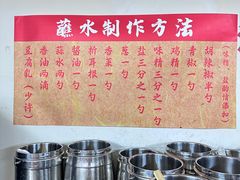 蘸水制作方法
胡辣椒半勺
青椒一勺
鸡精一勺
味精三分之一勺
盐三分之一勺
葱一勺
香菜一勺
折耳根一勺
酱油一勺
蒜水两勺
香油两滴
豆腐乳(少许)